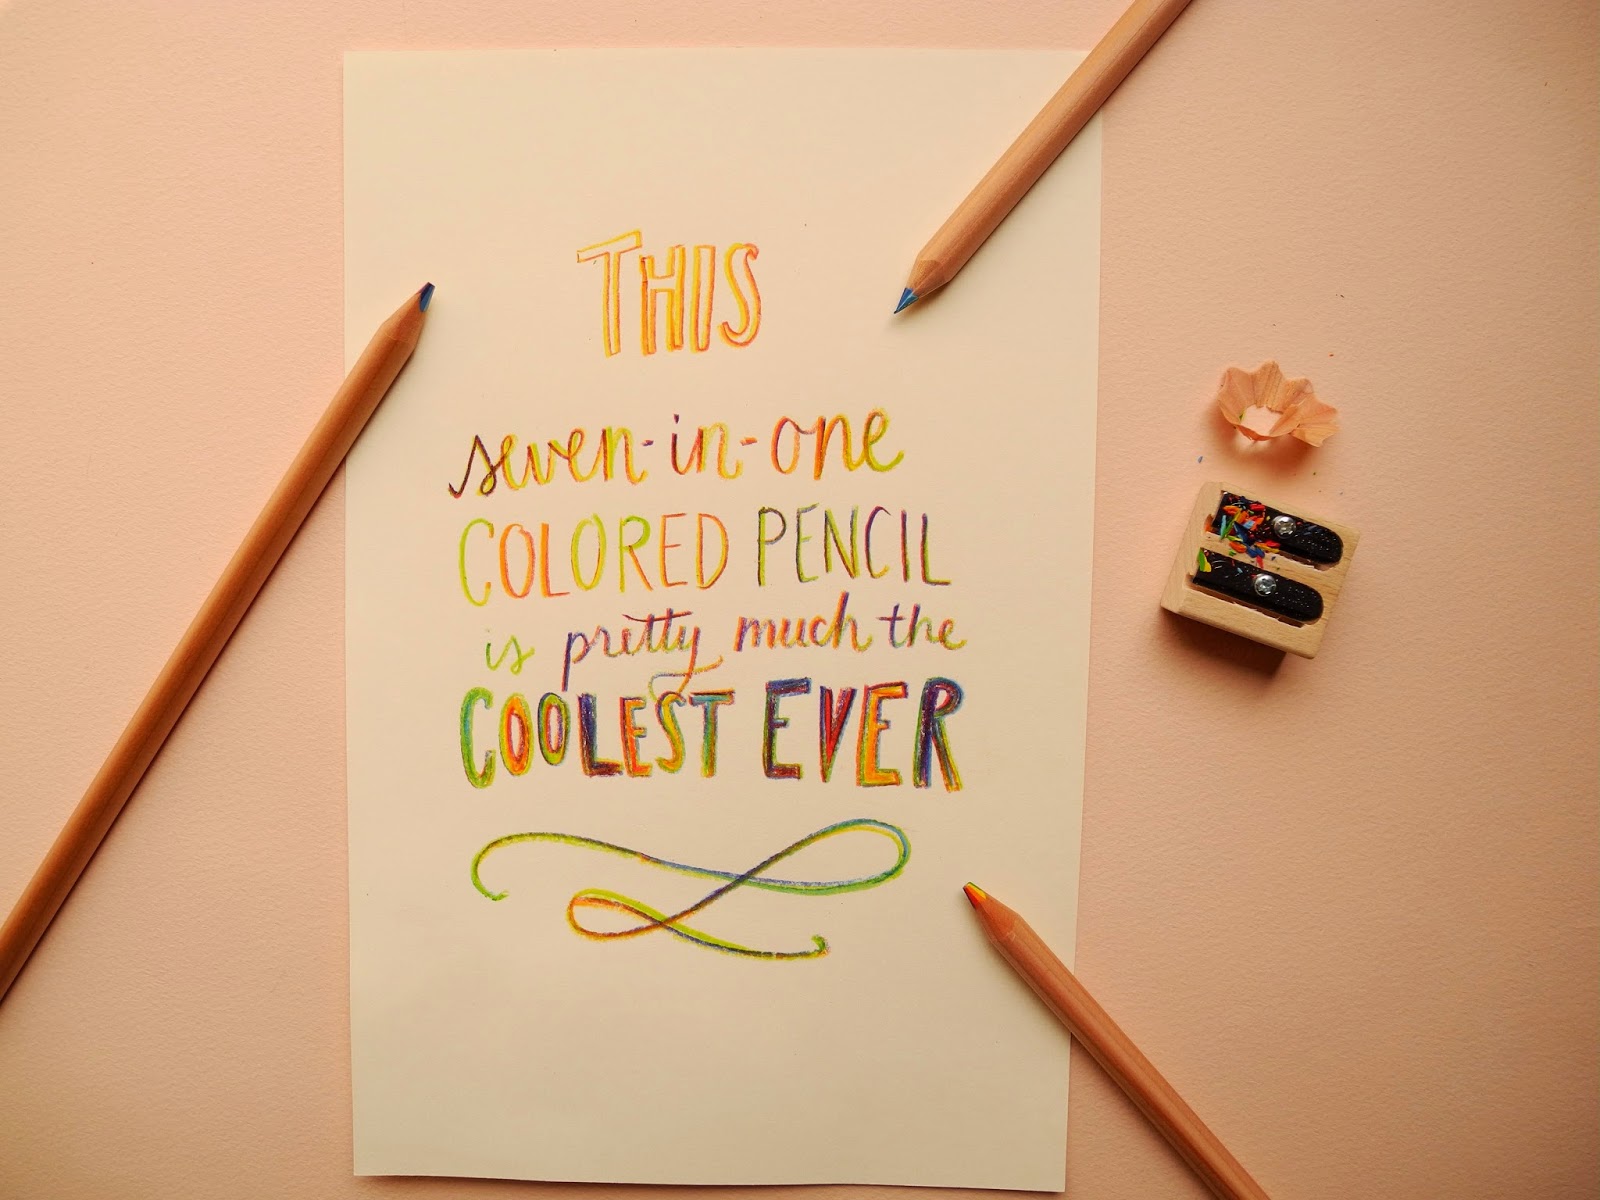 THIS
seven-in-one
COLORED PENCIL
is pretty much the
COOLEST EVER